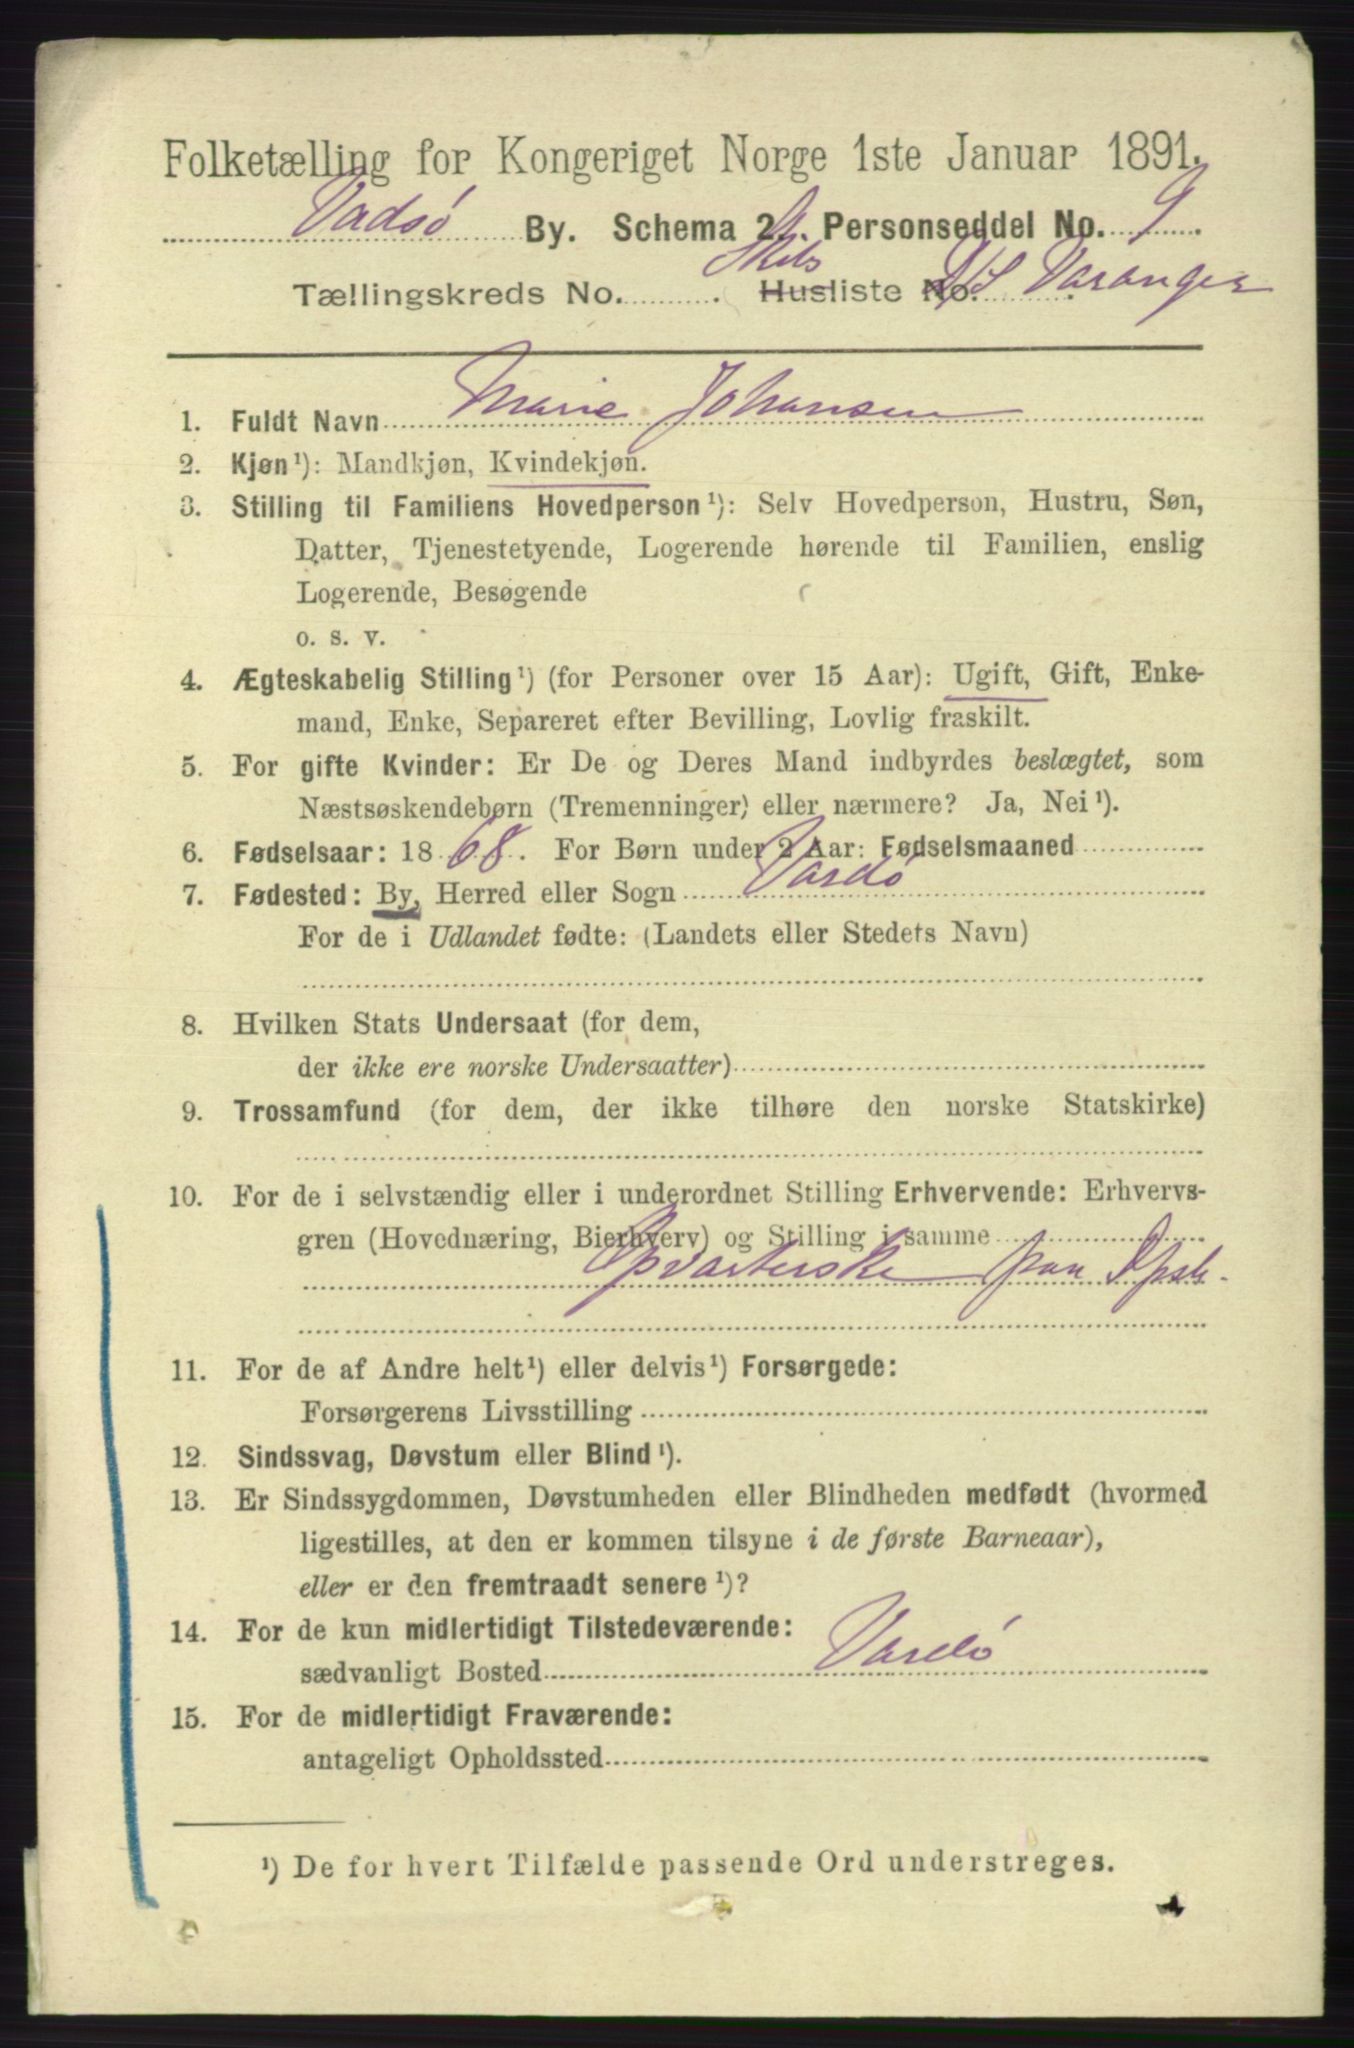 Folketælling for Kongeriget Norge 1ste Januar 1891.
Vadsö By. Schema 2. Personseddel No. 9
Tællingskreds No. . Skibs Husliste No. D/S Varanger
1. Fuldt Navn Marie Johansen
2. Kjøn¹): Mandkjøn, Kvindekjøn.
3. Stilling til Familiens Hovedperson¹): Selv Hovedperson, Hustru, Søn,
Datter, Tjenestetyende, Logerende hørende til Familien, enslig
Logerende, Besøgende
o. s. v.
4. Ægteskabelig Stilling¹) (for Personer over 15 Aar): Ugift, Gift, Enke-
mand, Enke, Separeret efter Bevilling, Lovlig fraskilt.
5. For gifte Kvinder: Er De og Deres Mand indbyrdes beslægtet, som
Næstsøskendebørn (Tremenninger) eller nærmere? Ja, Nei¹).
6. Fødselsaar: 1868. For Børn under 2 Aar: Fødselsmaaned
7. Fødested: By, Herred eller Sogn Vardö
For de i Udlandet fødte: (Landets eller Stedets Navn)
8. Hvilken Stats Undersaat (for dem,
der ikke ere norske Undersaatter)
9. Trossamfund (for dem, der ikke tilhøre den norske Statskirke)
10. For de i selvstændig eller i underordnet Stilling Erhvervende: Erhvervs-
gren (Hovednæring, Bierhverv) og Stilling i samme
Opvarterske paa Dpsk.
11. For de af Andre helt¹) eller delvis¹) Forsørgede:
Forsørgerens Livsstilling
12. Sindssvag, Døvstum eller Blind¹).
13. Er Sindssygdommen, Døvstumheden eller Blindheden medfødt (hvormed
ligestilles, at den er kommen tilsyne i de første Barneaar),
eller er den fremtraadt senere¹)?
14. For de kun midlertidigt Tilstedeværende:
sædvanligt Bosted Vardö
15. For de midlertidigt Fraværende:
antageligt Opholdssted
¹) De for hvert Tilfælde passende Ord understreges.